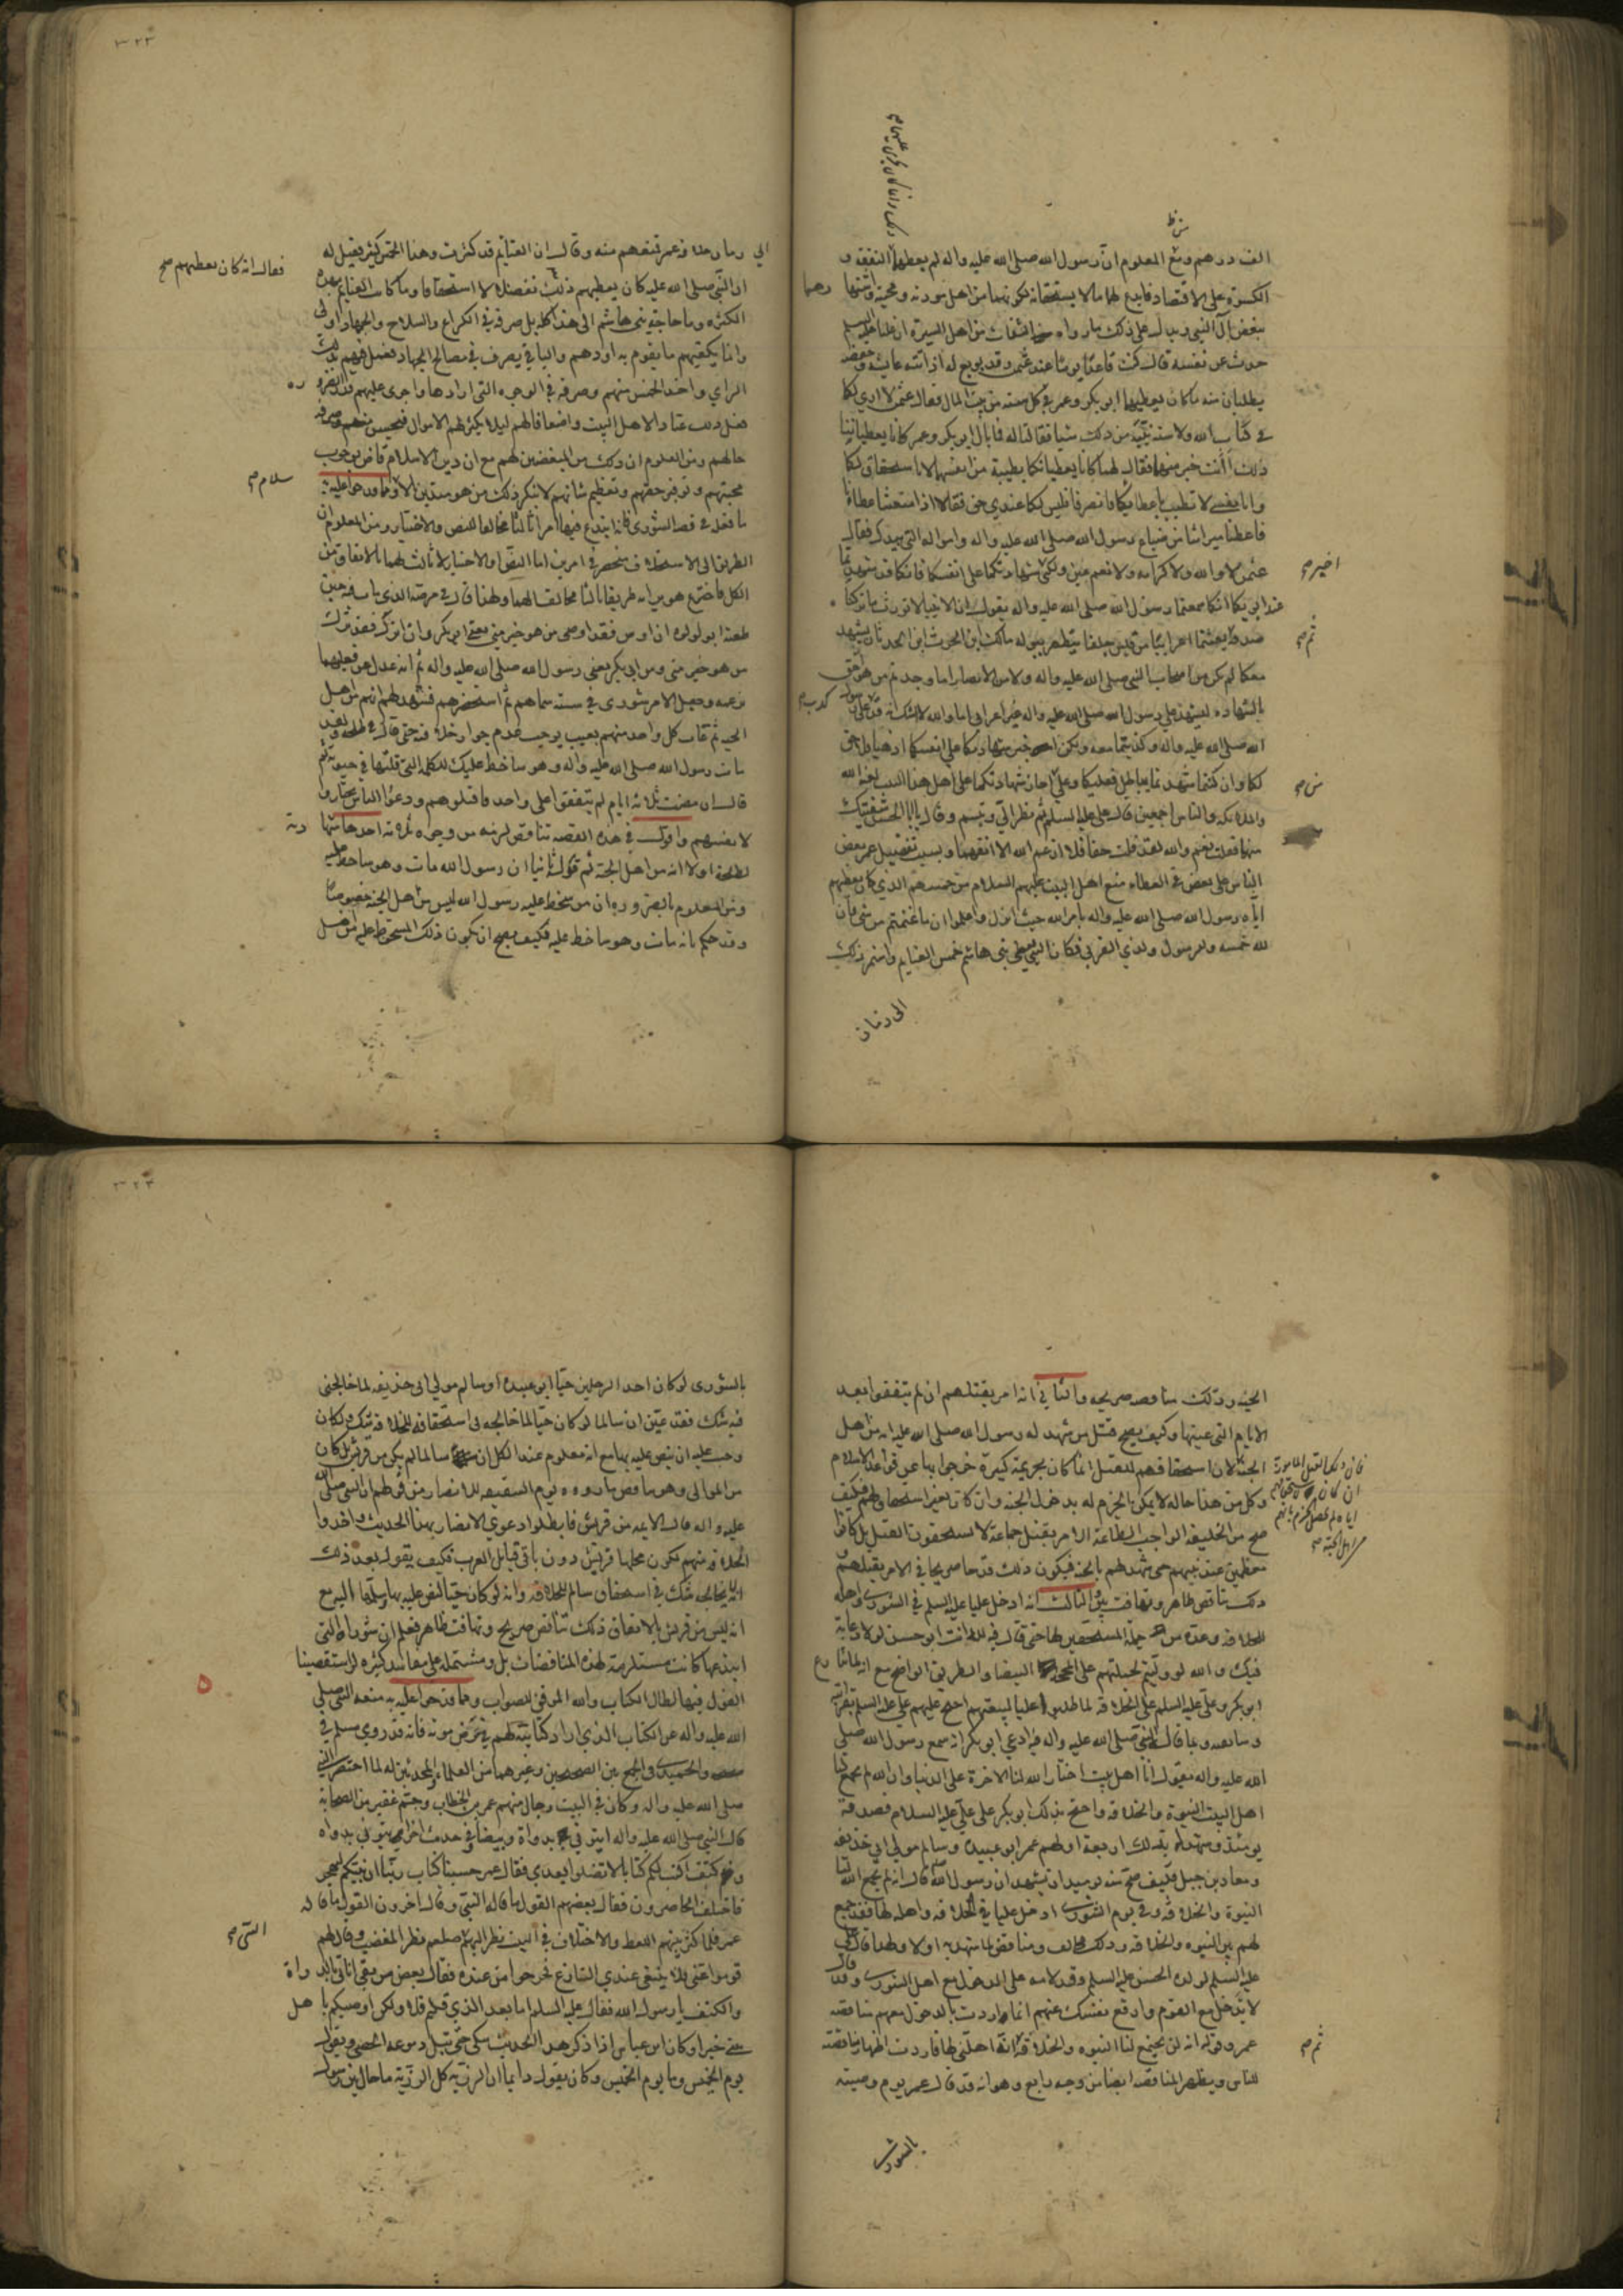 الف درهم ومع المعلوم ان رسول الله صلى الله عليه واله لم يعطها النفقة و
الكسوة على الاقتصاد فابدع لهما ما لا يستحقانه لكونهما من اهل مودته ومحبته
ببغض آل النبي ويدل على ذلك ما رواه الثقات من اهل السيرة ان عليا عليه السلم
حدث عن نفسه قال كنت قاعدا يوما عند عثمن وقد بويع له اذ اتته عايشة وحفصة
يطلبان منه ما كان يعطيهما ابو بكر وعمر في كل سنة من بيت المال فقال عثمن لا ارى لكما
في كتاب الله ولا سنة نبيه من ذلك شيا فقالتا له فما بال ابو بكر وعمر كانا يعطياننا
ذلك أأنت خير منهما فقال لهما كانا يعطيانكما بطيبة من انفسهما لا باستحقاق لكما
وانا نفسي لا تطيب باعطائكما فانصرفا فليس لكما عندي حق فقالا اذا منعتنا عطاءنا
فاعطنا ميراثنا من ضياع رسول الله صلى الله عليه واله وامواله التي بيدك فقال
عثمن لا والله ولا كرامة ولا نعم عين ولكني شهادتكما على انفسكما فانكما قد شهدتما
عند ابويكما انكما سمعتما رسول الله صلى الله عليه واله يقول ان الانبيا لا تورث ما تركنا
معكما لم يكن من اصحاب النبي صلى الله عليه واله ولا من الانصار اما وجدتم من هو احق
بالشهادة ليشهد على رسول الله صلى الله عليه واله غير اعرابي اما والله لا شك انه قد
الله صلى الله عليه واله وكذبتما معه ولكن اخير شهادتكما على انفسكما اذهبا فلا حق
لكما وان كنتما شهدتما بباطل فعليكما وعلى اجاز شهادتكما على اهل هذا البيت لعنة الله
والملائكة والناس اجمعين قال علي عليه السلم ثم نظر الي وتبسم وقال يابا الحسن شفيتك
منهما فقلت نعم والله لقد قلت حقا فلا ارغم الله الا انفهما وبسبب تفضيل عمر بعض
الناس على بعض في العطاء منع اهل البيت عليهم السلام من خمسهم الذي كان يعطيهم
اياه رسول الله صلى الله عليه واله بامر الله حيث انزل واعلموا ان ما غنمتم من شيء فان
لله خمسه وللرسول ولذي القربى فكان النبي يعطي بني هاشم خمس الغنايم واستمر ذلك
الى زمان
الى زمان عمر فمنعهم منه وقال ان الغنايم قد كثرت وهذا الخمس كثير فقيل له
ان النبي صلى الله عليه كان يعطيهم ذلك تفضلا لا استحقاقا وما كانت الغنايم بهذه
الكثرة وما حاجة بني هاشم الى هذا كله بل صرفه في الكراع والسلاح والجهاد اولى
وانما يكفيهم ما يقوم به اودهم والباقي يصرف في مصالح الجهاد
الراي واخذ الخمس منهم وصرفه في الوجوه التي ارادها واجرى عليهم
فعل ذلك عنادا لاهل البيت واضعافا لهم ليلا يكثر لهم الاموال
حالهم ومن المعلوم ان ذلك من المبغضين لهم مع ان دين الاسلام قاض بوجوب
محبتهم وتوفير حقهم وتعظيم شانهم لا ينكر ذلك من هو متدين
ما فعله في قصة الشورى فانه ابتدع فيها امرا ثالثا مخالفا للنص والاختيار ومن المعلوم ان
الطريق الى الاستخلاف منحصر في امرين اما النص او الاختيار لا ثالث لهما بالاتفاق من
الكل فاخترع هو برايه طريقا ثالثا مخالفا لهما ولهذا قال في مرضه الذي مات فيه حين
طعنه ابو لولوه ان اوص فقد اوصى من هو خير مني يعني ابو بكر وان اترك فقد ترك
من هو خير مني ومن ابي بكر يعني رسول الله صلى الله عليه واله ثم انه عدل عن فعليهما
وجعل الامر شورى في ستة سماهم ثم استحضرهم فشهد لهم انهم من اهل
الجنة ثم عاب كل واحد منهم بعيب يوجب عدم جواز خلافته حتى قال في طلحة لقد
مات رسول الله صلى الله عليه واله وهو ساخط عليك للكلمة التي قلتها في حيوته ثم
قال ان مضت ثلاثة ايام لم يتفقوا على واحد فاقتلوهم ودعوا الناس يختاروا
لانفسهم واقول في هذه القصة تناقض لزمه من وجوه ثلاثة احدها
لطلحة اولا انه من اهل الجنة ثم قوله ثانيا ان رسول الله مات وهو ساخط عليه
ومن المعلوم بالضرورة ان من سخط عليه رسول الله ليس من اهل الجنة خصوصا
وقد حكم بانه مات وهو ساخط عليه فكيف يصح ان يكون ذلك المسخوط عليه من اهل
فقال انه كان يعطيهم صح
الجنة وذلك مناقضة صريحة والثاني انه امر بقتلهم ان لم يتفقوا بعد
الايام التي عينها وكيف يصح قتل من شهد له رسول الله صلى الله عليه انه من اهل
الجنة لان استحقاقهم للقتل انما كان بجريمة كبيرة خرجوا بها عن قواعد الاسلام
وكل من هذا حاله لا يمكن الجزم له بدخول الجنة وان كان بغير استحقاق لهم فكيف
صح من الخليفة الواجب الطاعة الامر بقتل جماعة لا يستحقون القتل بل كانوا
معظمين عند نبيهم حتى شهد لهم بالجنة فيكون ذلك قدحا صريحا في الامر بقتلهم
ذلك تناقض ظاهر وتهافت بين الثالث انه ادخل عليا عليه السلم في الشورى واهله
للخلافة وعده من جملة المستحقين لها حتى قال فيه لله انت ابو حسن لولا دعابة
فيك والله لو وليتهم لحملتهم على المحجة البيضا والطريق الواضح مع
ابو بكر وعلي عليه السلم على الخلافة لما طلبوا عليا لبيعتهم احتج عليهم علي عليه السلم بقرابته
وسابقته وبما قال النبي صلى الله عليه واله فيه ادعى ابو بكر انه سمع رسول الله صلى
الله عليه واله يقول انا اهل بيت اختار الله لنا الاخرة على الدنيا وان الله لم يجمع لنا
اهل البيت النبوة والخلافة واحتج بذلك ابو بكر على علي عليه السلام فصدقه
يومئذ وشهد له بذلك اربعة اولهم عمر ابو عبيدة وسالم مولى ابي حذيفة
ومعاذ بن جبل فكيف صح منه يوميذ ان يشهد ان رسول الله قال انه لم يجمع الله لنا
النبوة والخلافة وفي يوم الشورى ادخل عليا في الخلافة واهله لها فقد جمع
لهم بين النبوة والخلافة وذلك مخالف ومناقض لما شهد به اولا ولهذا قال علي
عليه السلم لولده الحسن عليه السلم وقد لامه على الدخول مع اهل الشورى وقد قال
لا تدخل مع القوم وارفع نفسك عنهم انما اردت بالدخول معهم مناقضة
عمر وقوله انه لن يجتمع لنا النبوة والخلافة انه اهلني لها فاردت اظهار مناقضته
للناس ويظهر المناقضة ايضا من وجه رابع وهو انه قد قال عمر يوم وصيته
بالشورى
بالشورى لو كان احد الرجلين حيا ابو عبيدة او سالم مولى ابي حذيفة لما خالجني
فيه شك فقد عين ان سالما لو كان حيا لما خالجه في استحقاقه للخلافة شك ولكان
وجب عليه ان ينص عليه بها مع انه معلوم عند الكل ان سالما لم يكن من قريش بل كان
من الموالي وهو مناقض ما رووه يوم السقيفة للانصار من قولهم ان النبي صلى الله
عليه واله قال الايمة من قريش فابطلوا دعوى الانصار بهذا الحديث واخذوا
الخلافة منهم لكون محلها قريش دون باقي قبايل العرب فكيف يقول بعد ذلك
انه لا يخالجه شك في استحقاق سالم للخلافة وانه لو كان حيا لنص عليه بها وسلمها اليه مع
انه ليس من قريش بالاتفاق فذلك تناقض صريح وتهافت ظاهر فعلم ان شوراه التي
ابتدعها كانت مستلزمة لهذه المناقضات بل ومشتملة على مفاسد كثيرة لو استقصينا
القول فيها لطال الكتاب والله الموفق للصواب ومما قدحوا عليه به منعه النبي صلى
الله عليه واله عن الكتاب الذي اراد كتابته لهم في مرض موته فانه قد روى مسلم في
والحميدي في الجمع بين الصحيحين وغيرهما من العلماء والمحدثين انه لما احتضر النبي
صلى الله عليه واله وكان في البيت رجال منهم عمر بن الخطاب وجم غفير من الصحابة
قال النبي صلى الله عليه واله ايتوني بدواة وبيضا وفي حديث اخر ايتوني بدواة
وكتف اكتب لكم كتابا لا تضلوا بعدي فقال عمر حسبنا كتاب ربنا ان نبيكم ليهجر
فاختلف الحاضرون فقال بعضهم القول ما قاله النبي وقال اخرون القول ما قاله
عمر فلما كثر بينهم اللغط والاختلاف في البيت نظر اليهم صلعم نظر المغضب وقال لهم
قوموا عني فلا ينبغي عندي التنازع فخرجوا من عنده فقال بعض من بقي اناتي بالدواة
والكتف يا رسول الله فقال عليه السلم اما بعد الذي قلتم فلا ولكن اوصيكم باهل
بيتي خيرا وكان ابن عباس اذا ذكر هذا الحديث بكى حتى تبل دموعه الحصى ويقول
يوم الخميس وما يوم الخميس وكان يقول دايما ان الرزية كل الرزية ما حال بين رسول